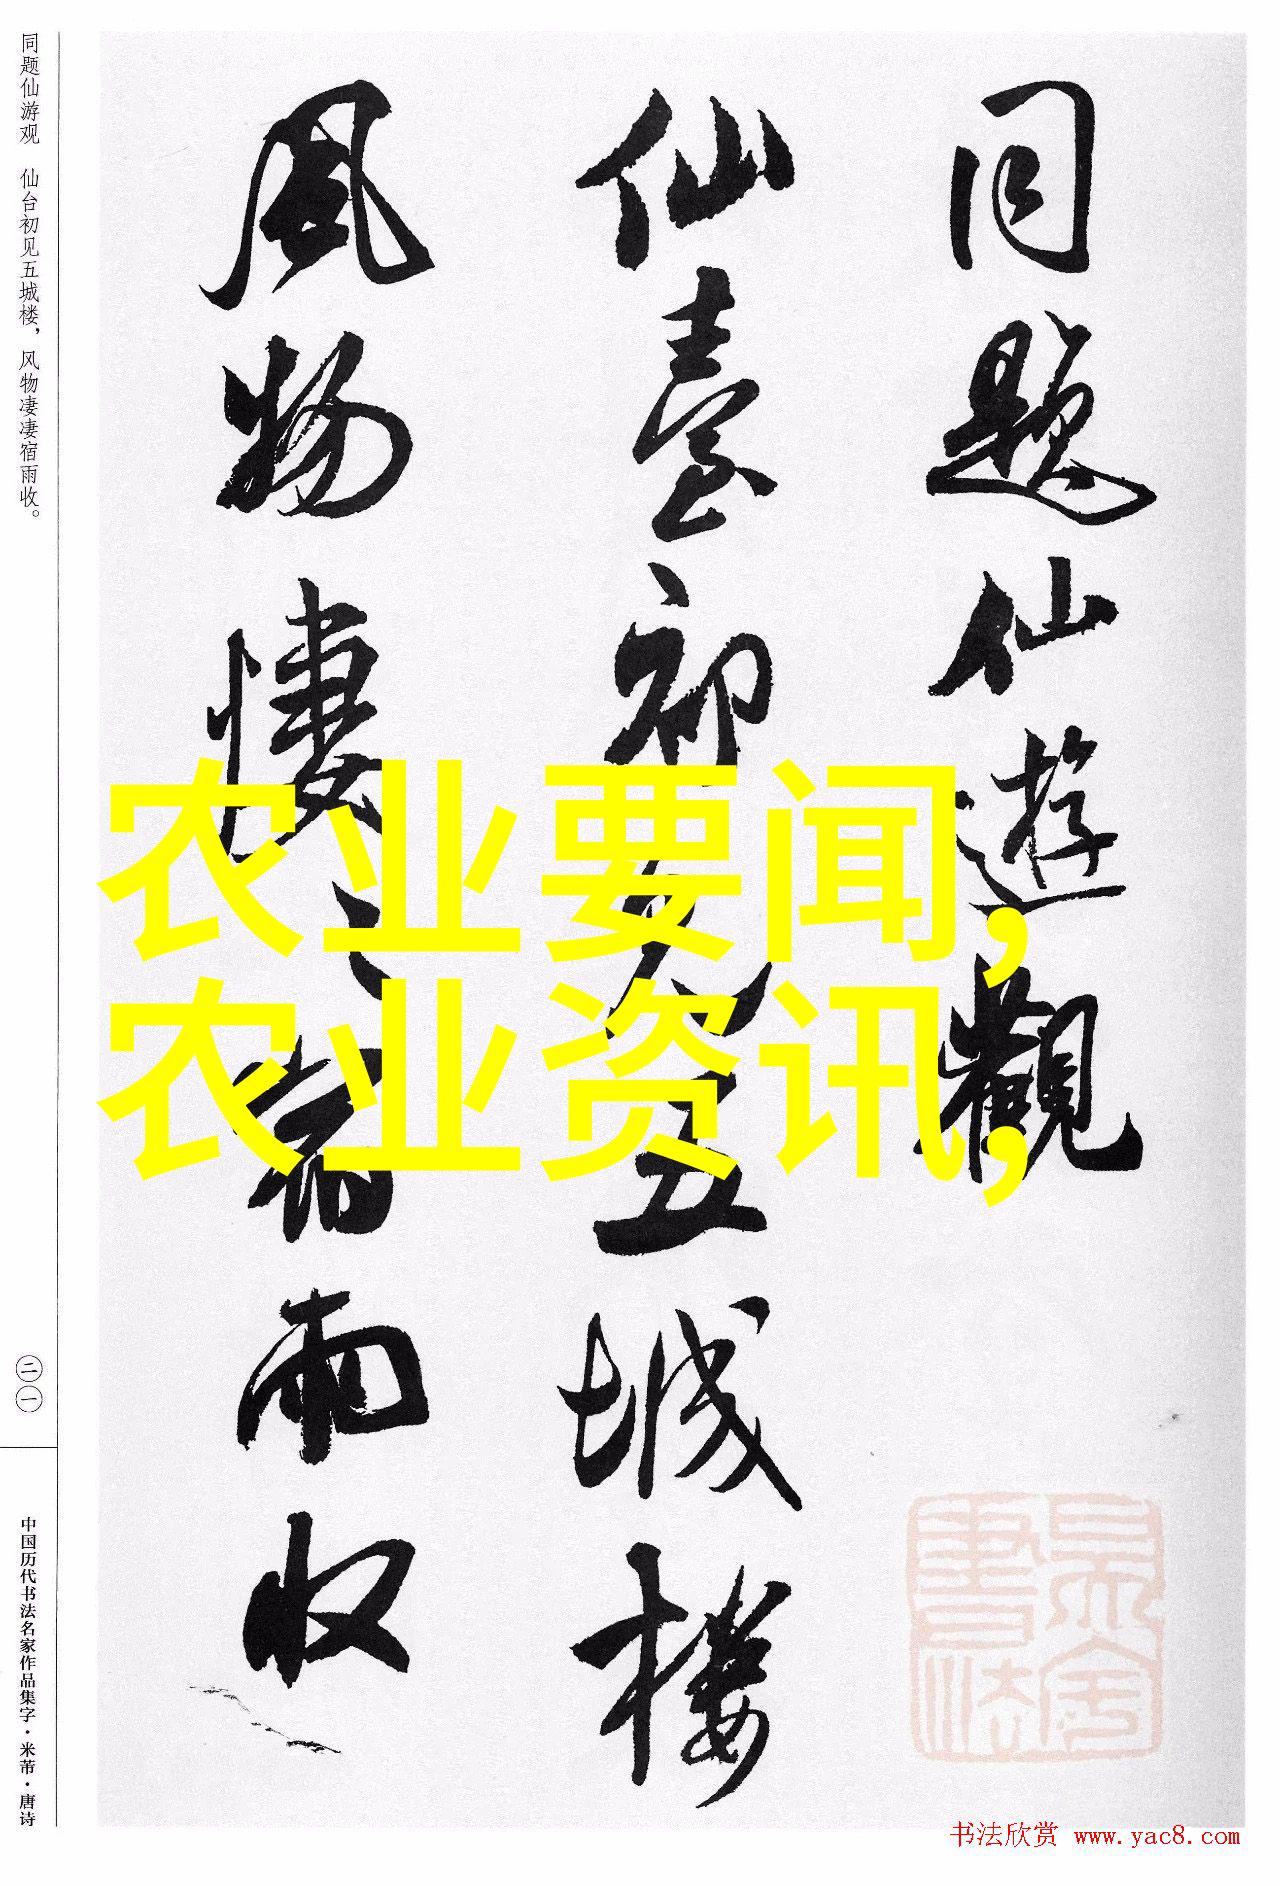 同题仙遊觀
仙臺初见五城楼
風物悽〻宿雨收
农业要闻,
农业资讯,
同题仙游观 仙台初见五城楼，风物凄凄宿雨收。
二一
中国历代书法名家作品集字·米芾·唐诗
书法欣赏 www.yac8.com